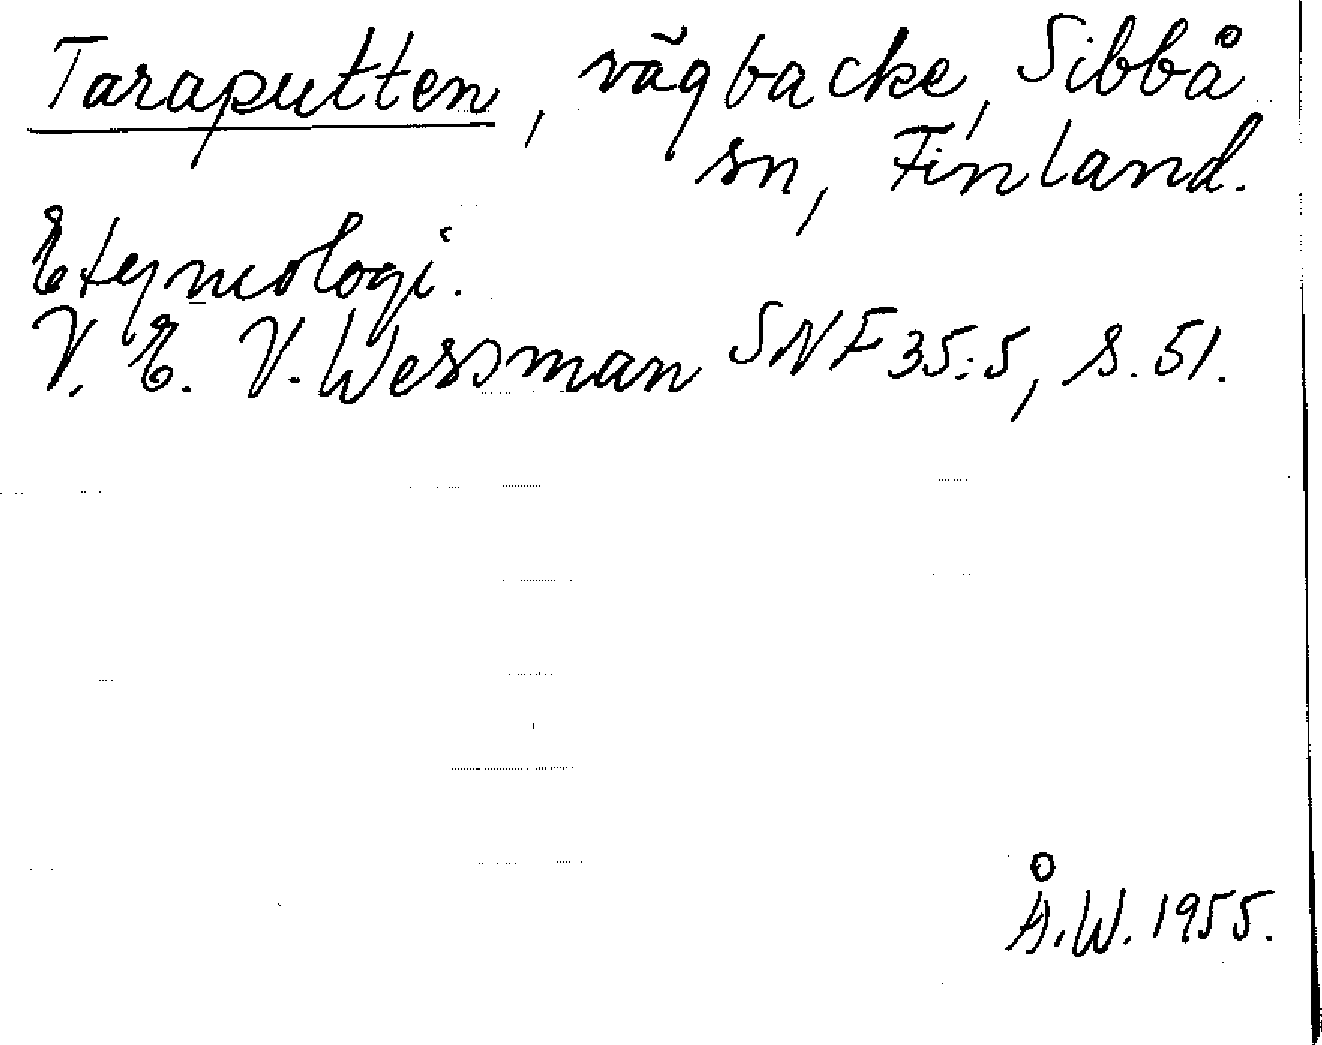 Taraputten, vägbacke, Sibbå
sn, Finland.
Etymologi.
V. E. V. Wessman SNF 35:5, s. 51.
Å.W. 1955.